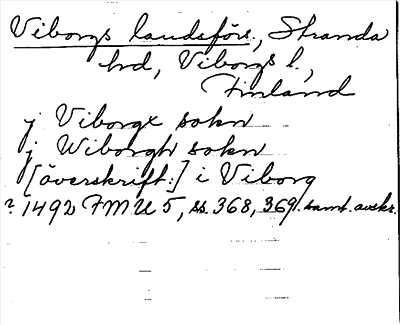 Viborgs landsförs., Stranda
hd, Viborgs l.,
Finland
j Viborgx sokn
j Wiborgh sokn
[överskrift:] i Viborg
? 1492 FMU 5, ss. 368, 369. samt. avskr.